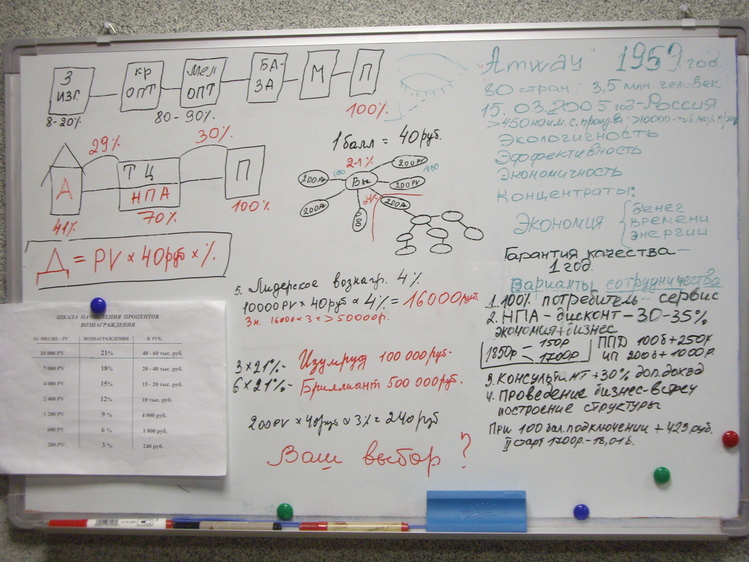 З ИЗГ.
КР ОПТ
МЕЛ ОПТ
БА-ЗА
М
П
8-20%
80-90%
100%
29%
30%
А
ТЦ
НПА
П
41%
70%
100%
Д = PV × 40руб × %
1 балл = 40 руб.
21%
Вы
200PV
200PV
200PV
200PV
200PV
5. Лидерское вознагр. 4%
10000PV × 40руб × 4% = 16000руб.
3м. 16000 × 3 = > 50000р.
3 × 21% - Изумруд 100 000руб.
6 × 21% - Бриллиант 500 000руб.
200PV × 40руб × 3% = 240руб
Ваш выбор?
ШКАЛА НАЧИСЛЕНИЯ ПРОЦЕНТОВ
ВОЗНАГРАЖДЕНИЯ
ВОЗНАГРАЖДЕНИЯ В РУБ.
10 000 PV 21% 40 - 60 тыс. руб.
7 000 PV 18% 20 - 40 тыс. руб.
4 000 PV 15% 15 - 20 тыс. руб.
2 400 PV 12% 10 тыс. руб.
1 200 PV 9 % 4 000 руб.
600 PV 6 % 1 000 руб.
200 PV 3 % 240 руб.
Amway 1959 год.
80 стран: 3,5 млн. человек
15.03.2005 год - Россия
>450 наим. с.
Экологичность
Эффективность
Экономичность
Концентраты:
Экономия { Денег
Времени
Энергии
Гарантия качества -
1 год.
Варианты сотрудничества
1. 100% потребитель - сервис
2. НПА - дисконт - 30-35%
экономия + бизнес
1850р - 150р
1700р
ППД 100б + 250р
ИП 200б + 1000р.
3. Консультант + 30% доп. доход
4. Проведение бизнес-встреч
построение структуры
При 100 бал. подключении + 423 руб.
II старт 1700р. -